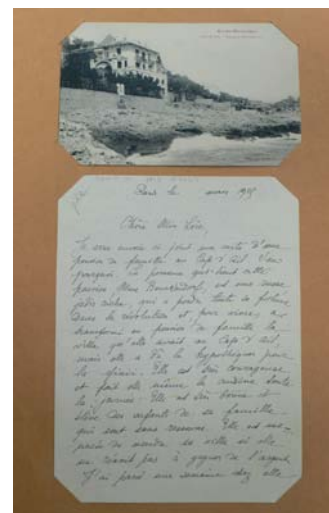 Paris le mars 1925
Chère Miss Loïe,
Je vous envoie ci joint une carte d'une
pension de famille au Cap d'Ail. Voici
pourquoi. La personne qui tient cette
pension Mme est une russe
jadis riche, qui a perdu toute sa fortune
dans la révolution et pour vivre, a
transformé en pension de famille la
villa qu'elle avait au Cap d'Ail,
mais elle a dû la hypothéquer pour
la . Elle est très courageuse
et fait elle même la cuisine toute
la journée. Elle est très bonne et
élève des enfants de sa famille
qui sont sans ressource. Elle est me-
nacée de vendre sa villa si elle
ne réussit pas à gagner de l'argent.
J'ai passé une semaine chez elle